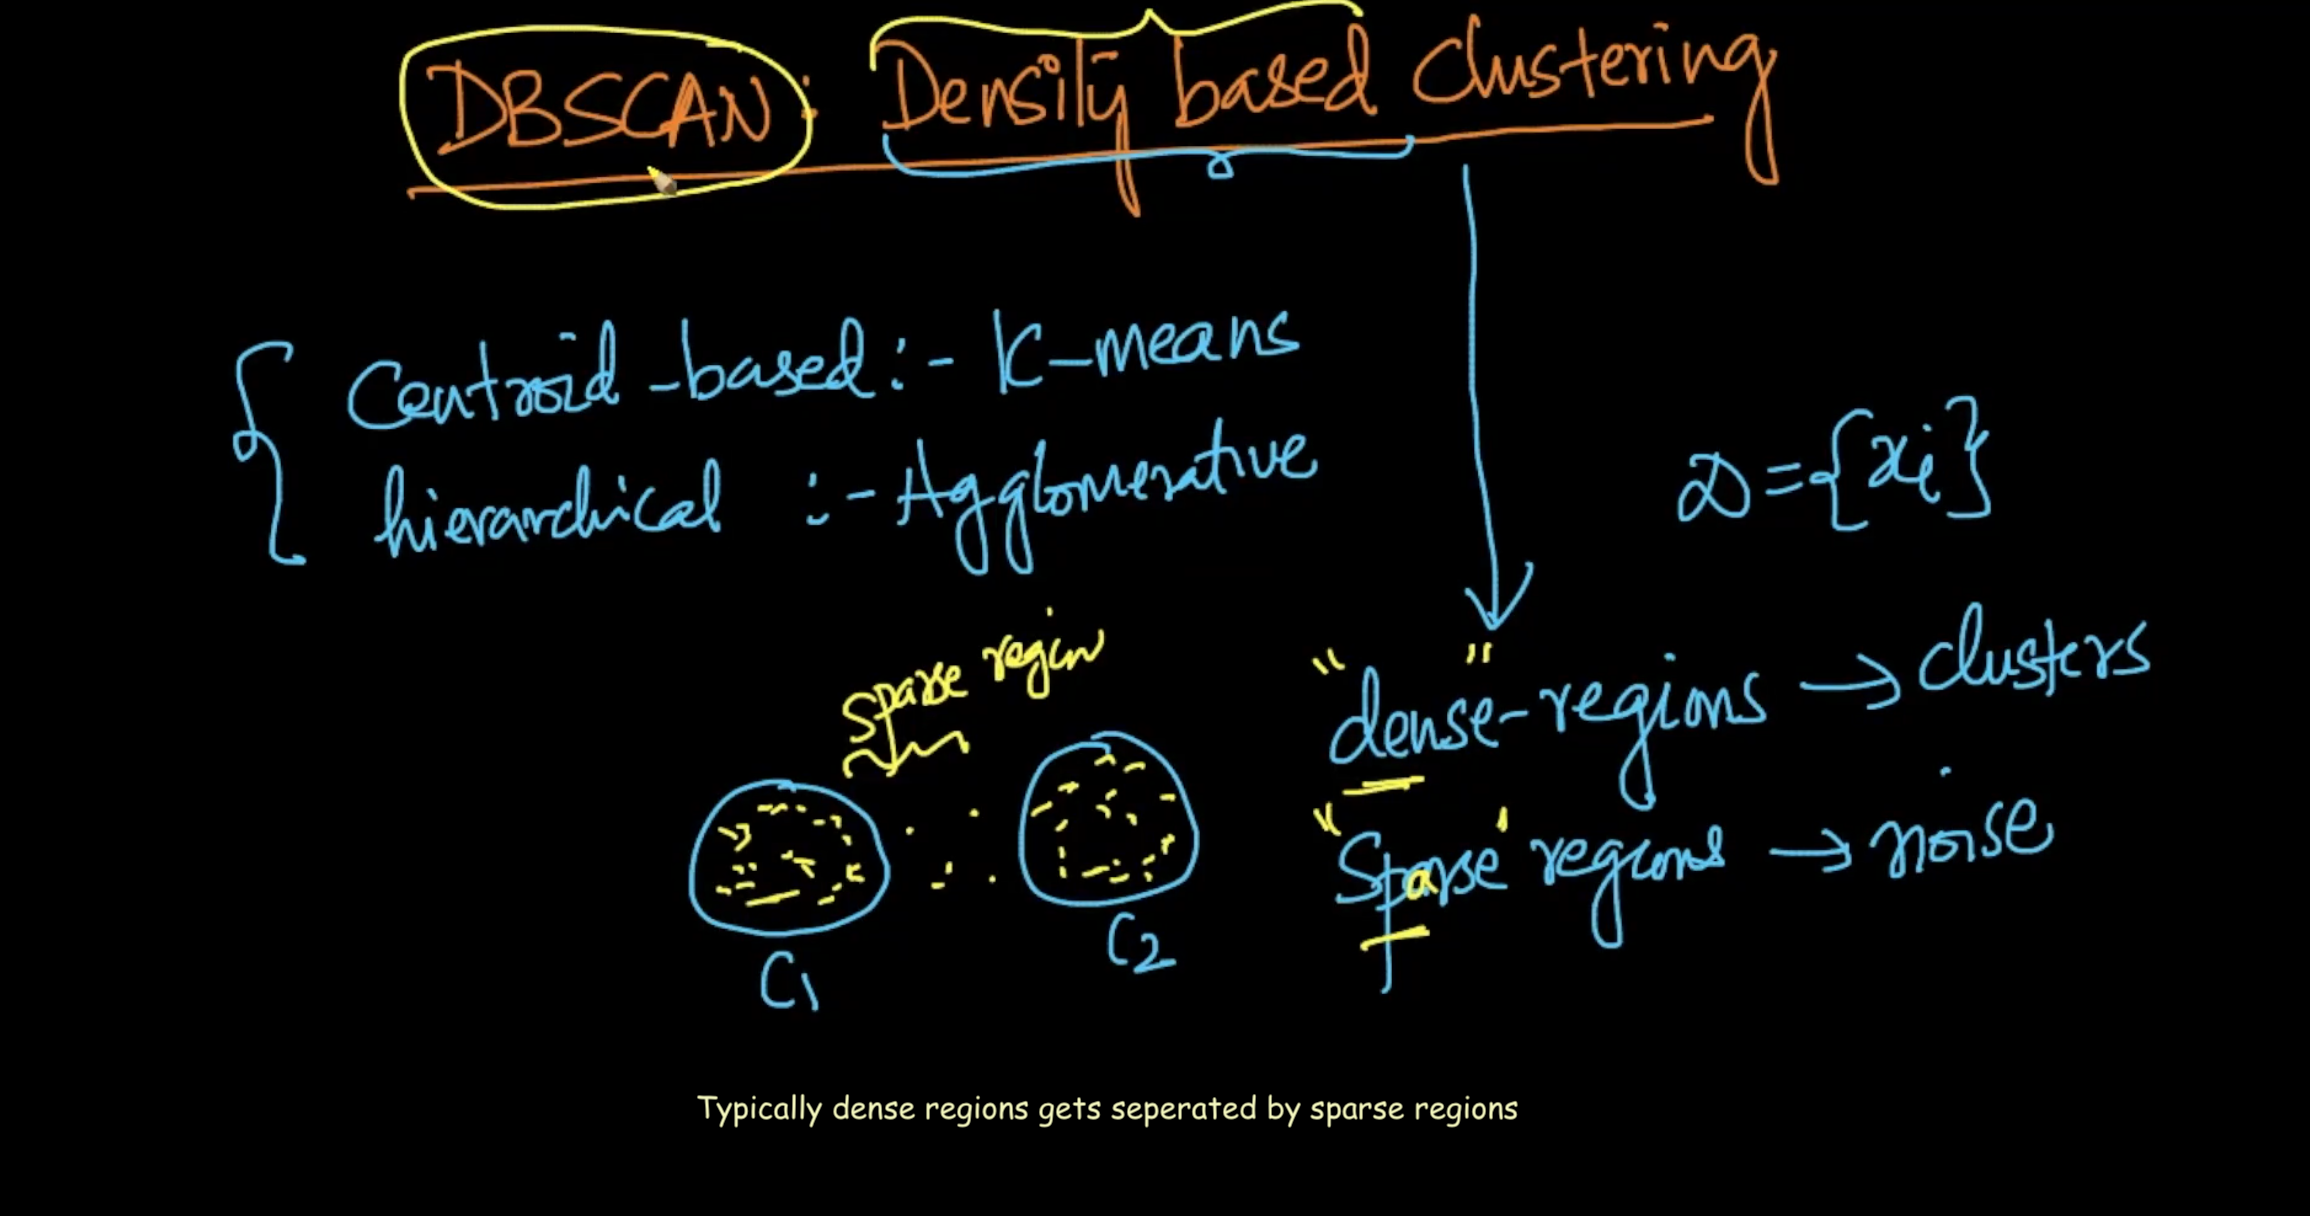 DBSCAN: Density based Clustering
Centroid-based :- K-means
hierarchical :- Agglomerative
D = {xi}
sparse region
"dense"-regions → clusters
"Sparse" regions → noise
C1
C2
Typically dense regions gets seperated by sparse regions